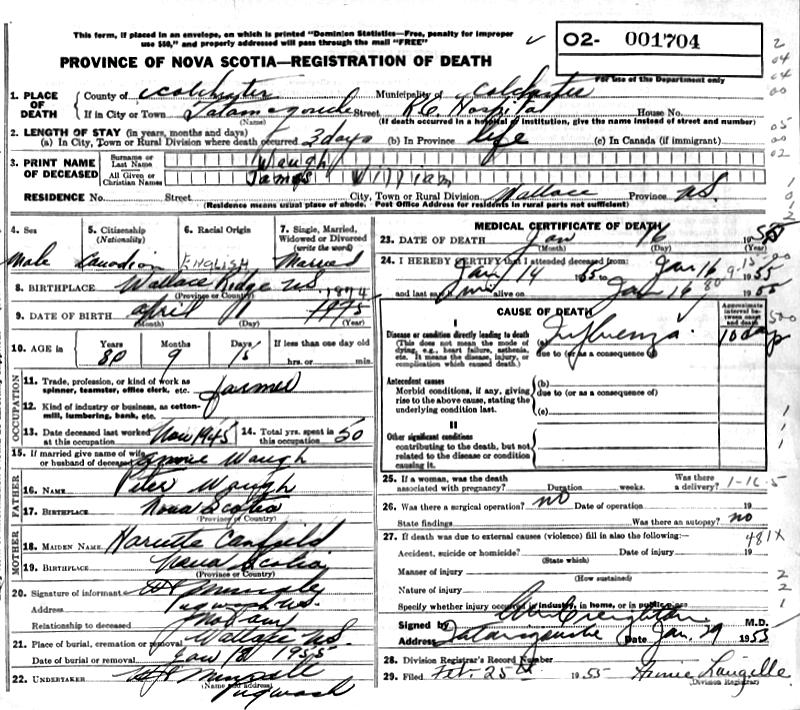 This form, if placed in an envelope, on which is printed "Dominion Statistics—Free, penalty for improper
use $50," and properly addressed will pass through the mail "FREE"
O2- 001704
PROVINCE OF NOVA SCOTIA—REGISTRATION OF DEATH
For use of the Department only
1. PLACE OF DEATH
County of Colchester Municipality of Colchester
If in City or Town Tatamagouche Street R.C. Hospital House No.
(Name) (If death occurred in a hospital or institution, give the name instead of street and number)
2. LENGTH OF STAY (in years, months and days)
(a) In City, Town or Rural Division where death occurred 3 days (b) In Province life (c) In Canada (if immigrant)
3. PRINT NAME OF DECEASED
Surname or Last Name Waugh
All Given or Christian Names James William
RESIDENCE No. Street City, Town or Rural Division Wallace Province N.S.
(Residence means usual place of abode. Post Office Address for residents in rural parts not sufficient)
4. Sex Male
5. Citizenship (Nationality) Canadian
6. Racial Origin ENGLISH
7. Single, Married, Widowed or Divorced (write the word) Married
8. BIRTHPLACE Wallace Ridge N.S.
(Province or Country)
1874
9. DATE OF BIRTH April 1 1875
(Month) (Day) (Year)
10. AGE in Years 80 Months 9 Days 15 If less than one day old hrs. or min.
OCCUPATION
11. Trade, profession, or kind of work as spinner, teamster, office clerk, etc. farmer
12. Kind of industry or business, as cotton-mill, lumbering, bank, etc.
13. Date deceased last worked at this occupation Nov 1945
14. Total yrs. spent in this occupation 50
15. If married give name of wife or husband of deceased Waugh
FATHER
16. NAME Peter Waugh
17. BIRTHPLACE Nova Scotia
(Province or Country)
MOTHER
18. MAIDEN NAME Canfield
19. BIRTHPLACE Nova Scotia
(Province or Country)
20. Signature of informant
Address Pugwash N.S.
Relationship to deceased
21. Place of burial, cremation or removal Wallace N.S.
Date of burial or removal Jan 18 1955
22. UNDERTAKER Pugwash
(Name and address)
MEDICAL CERTIFICATE OF DEATH
23. DATE OF DEATH Jan 16 1955
(Month) (Day)
24. I HEREBY CERTIFY that I attended deceased from:
Jan 14 1955 to Jan 16 1955
and last saw him alive on Jan 16 1955
CAUSE OF DEATH
Approximate interval between onset and death
I
Disease or condition directly leading to death
(This does not mean the mode of dying, e.g., heart failure, asthenia, etc. It means the disease, injury, or complication which caused death.)
(a) Influenza 10 days
due to (or as a consequence of)
Antecedent causes
Morbid conditions, if any, giving rise to the above cause, stating the underlying condition last.
(b)
due to (or as a consequence of)
(c)
II
Other significant conditions
contributing to the death, but not related to the disease or condition causing it.
25. If a woman, was the death associated with pregnancy? Duration weeks. Was there a delivery?
26. Was there a surgical operation? no Date of operation 19
State findings Was there an autopsy? no
27. If death was due to external causes (violence) fill in also the following:—
481X
Accident, suicide or homicide? Date of injury 19
(State which)
Manner of injury
(How sustained)
Nature of injury
Specify whether injury occurred in industry, in home, or in public place
Signed by Creighton M.D.
Address Tatamagouche Date Jan. 29 1955
28. Division Registrar's Record Number
29. Filed Feb. 25th 1955 Langille
(Division Registrar)